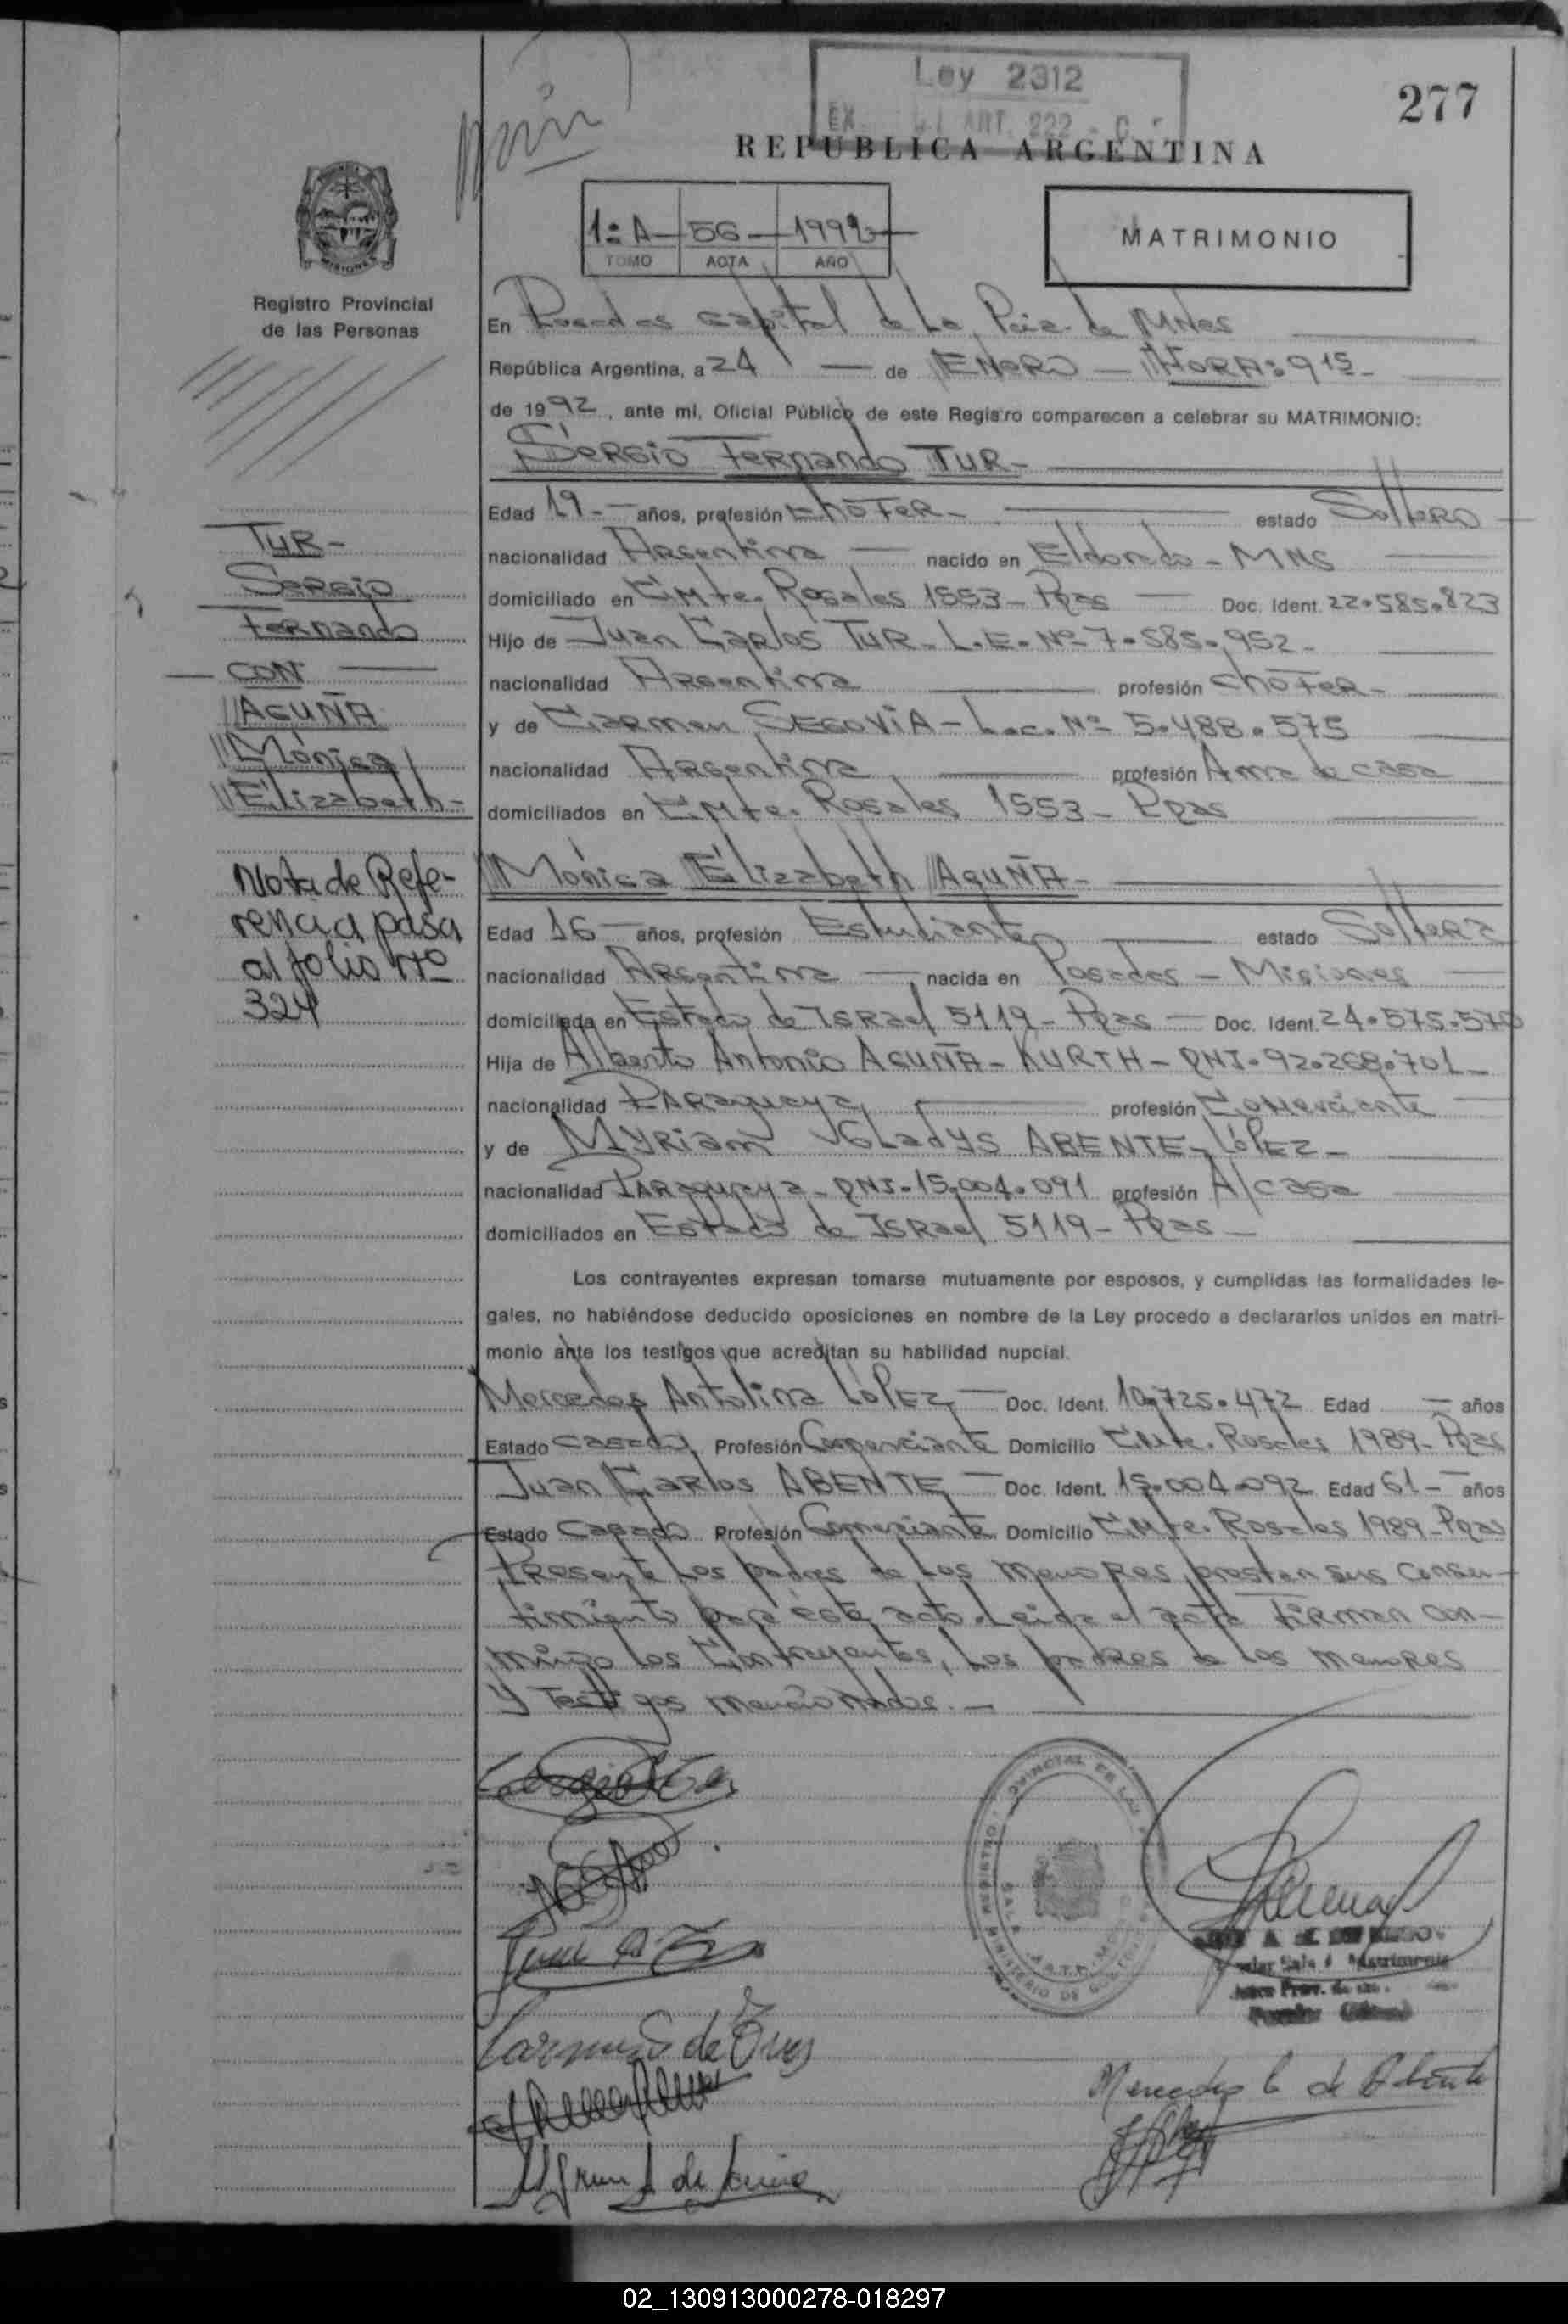 Ley 2312
277
REPUBLICA ARGENTINA
1:A 56 1992
TOMO ACTA AÑO
MATRIMONIO
MISIONES
Registro Provincial
de las Personas
En Posadas capital de la Pcia. de MNes
República Argentina, a 24 — de ENERO — HORA: 9 15 -
de 1992, ante mi, Oficial Público de este Registro comparecen a celebrar su MATRIMONIO:
SERGIO FERNANDO TUR-
Edad 19.- años, profesión CHOFER - estado Soltero
nacionalidad Argentina — nacido en Eldorado - MNS
domiciliado en Cmte. Rosales 1553 - Pdas — Doc. Ident. 22.585.823
Hijo de Juan Carlos TUR - L.E. Nº 7.585.952 -
nacionalidad Argentina profesión chofer -
y de Carmen SEGOVIA - L.C. Nº 5.488.575
nacionalidad Argentina profesión Ama de casa
domiciliados en Cmte. Rosales 1553 - Pdas
TUR -
Sergio
Fernando
CON
ACUÑA
Mónica
Elizabeth -
Nota de Refe-
rencia pasa
al folio Nº
324
Mónica Elizabeth ACUÑA -
Edad 16 — años, profesión Estudiante estado Soltera
nacionalidad Argentina — nacida en Posadas - Misiones
domiciliada en Estado de Israel 5119 - Pdas — Doc. Ident. 24.575.570
Hija de Alberto Antonio ACUÑA - KURTH - DNI. 92.268.701 -
nacionalidad PARAguaya profesión Comerciante
y de Myriam Gladys ABENTE - LÓPEZ -
nacionalidad PARAguaya - DNI. 15.004.091 profesión A/casa
domiciliados en Estado de Israel 5119 - Pdas -
Los contrayentes expresan tomarse mutuamente por esposos, y cumplidas las formalidades le-
gales, no habiéndose deducido oposiciones en nombre de la Ley procedo a declararlos unidos en matri-
monio ante los testigos que acreditan su habilidad nupcial.
Mercedes Antolina López — Doc. Ident. 10.725.472 Edad — años
Estado casada Profesión Comerciante Domicilio Cmte. Rosales 1989 - Pdas
Juan Carlos ABENTE — Doc. Ident. 15.004.092 Edad 61 - años
Estado Casado Profesión Comerciante Domicilio Cmte. Rosales 1989 - Pdas
Presente los padres de los menores prestan sus consen-
timiento para éste acto. Leida el acta firman con-
migo los Contrayentes, los padres de los menores
y testigos mencionados. -
Mercedes L de Abente
02_130913000278-018297